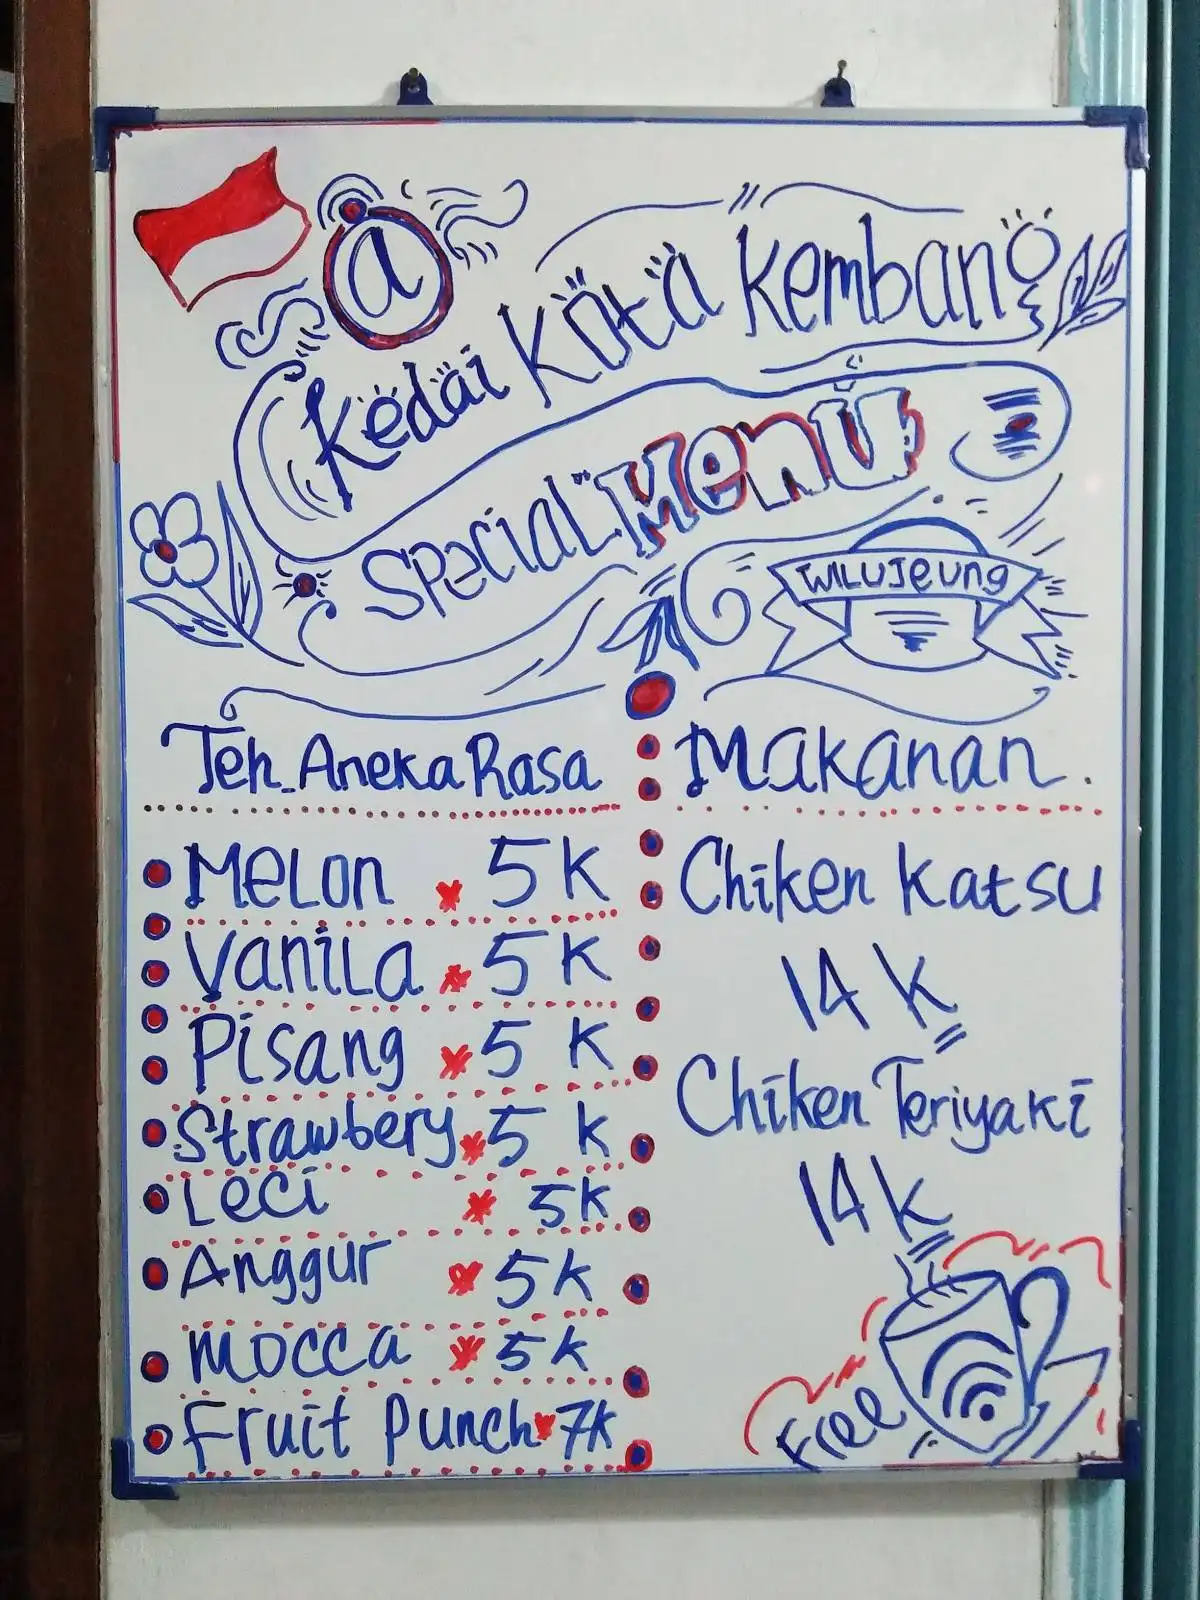 a
Kedai Kota Kembang
Special Menu
WILUJEUNG
Teh Aneka Rasa
Melon * 5K
Vanila * 5K
Pisang * 5K
Strawbery * 5K
Leci * 5K
Anggur * 5K
Mocca * 5K
Fruit Punch * 7K
Makanan.
Chiken Katsu
14 K
Chiken Teriyaki
14 K
Free